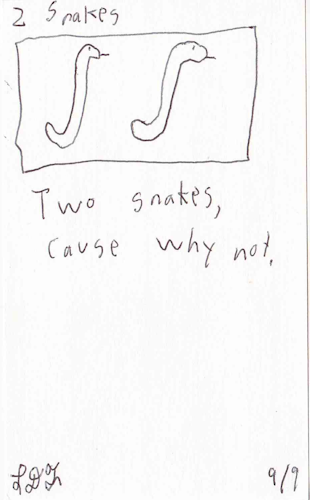 2 Snakes
Two snakes,
cause why not.
9/9